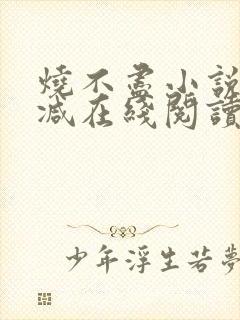 燒不盡小說
减在綫閱讀
少年浮生若夢